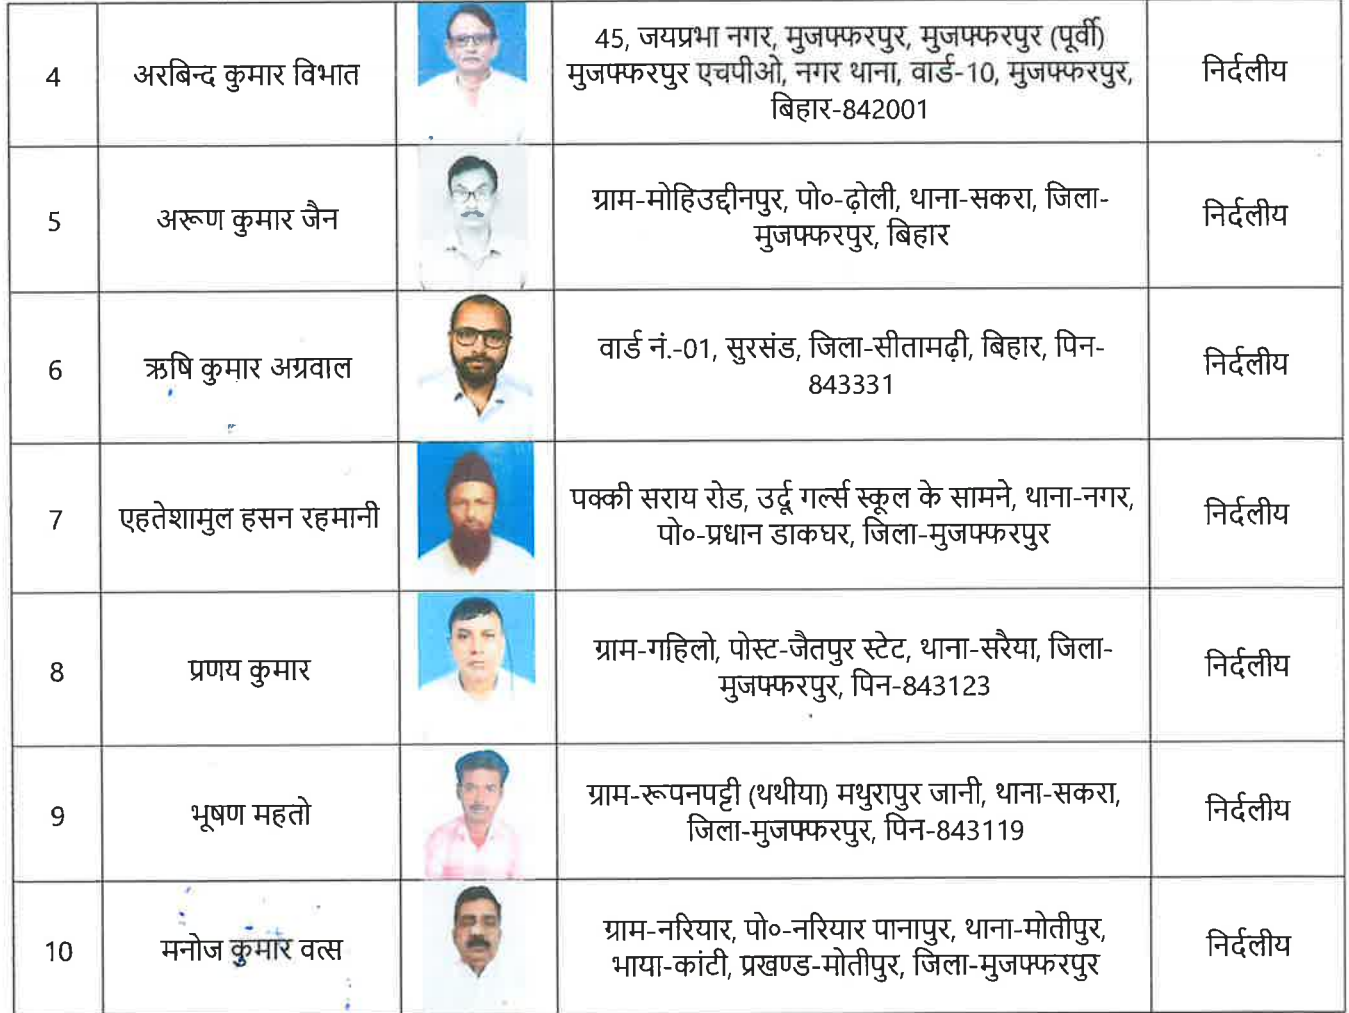 4
अरबिन्द कुमार विभात
45, जयप्रभा नगर, मुजफ्फरपुर, मुजफ्फरपुर (पूर्वी)
मुजफ्फरपुर एचपीओ, नगर थाना, वार्ड-10, मुजफ्फरपुर,
बिहार-842001
निर्दलीय
5
अरूण कुमार जैन
ग्राम-मोहिउद्दीनपुर, पो०-ढ़ोली, थाना-सकरा, जिला-
मुजफ्फरपुर, बिहार
निर्दलीय
6
ऋषि कुमार अग्रवाल
वार्ड नं.-01, सुरसंड, जिला-सीतामढ़ी, बिहार, पिन-
843331
निर्दलीय
7
एहतेशामुल हसन रहमानी
पक्की सराय रोड, उर्दू गर्ल्स स्कूल के सामने, थाना-नगर,
पो०-प्रधान डाकघर, जिला-मुजफ्फरपुर
निर्दलीय
8
प्रणय कुमार
ग्राम-गहिलो, पोस्ट-जैतपुर स्टेट, थाना-सरैया, जिला-
मुजफ्फरपुर, पिन-843123
निर्दलीय
9
भूषण महतो
ग्राम-रूपनपट्टी (थथीया) मथुरापुर जानी, थाना-सकरा,
जिला-मुजफ्फरपुर, पिन-843119
निर्दलीय
10
मनोज कुमार वत्स
ग्राम-नरियार, पो०-नरियार पानापुर, थाना-मोतीपुर,
भाया-कांटी, प्रखण्ड-मोतीपुर, जिला-मुजफ्फरपुर
निर्दलीय